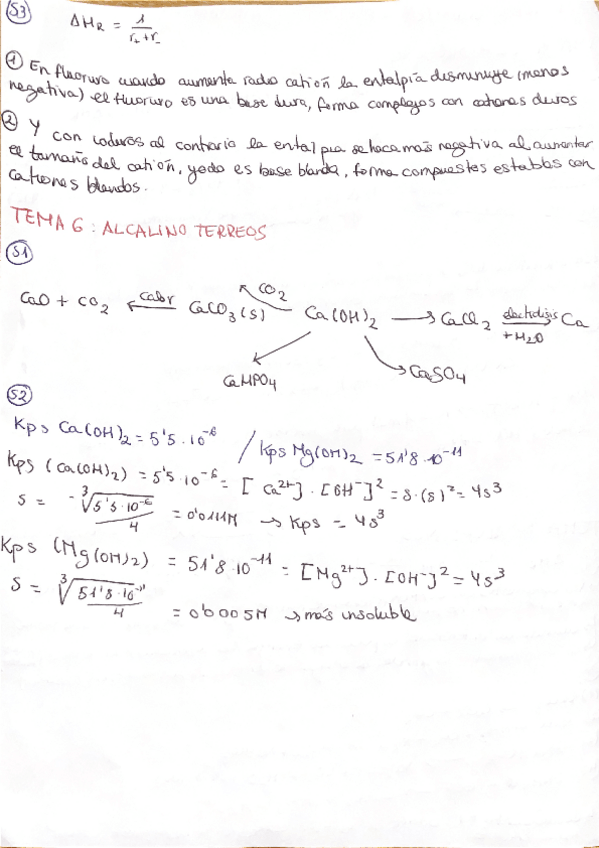 S3
ΔH_R = 1 / r₊ + r₋
① En fluoruro cuando aumenta radio catión la entalpía disminuye (menos
negativa) el fluoruro es una base dura, forma complejos con cationes duros
② Y con ioduros al contrario la entalpia se hace más negativa al aumentar
el tamaño del catión, yodo es base blanda, forma compuestos estables con
cationes blandos.
TEMA 6: ALCALINO TERREOS
S1
CO₂
CaO + CO₂ ← calor CaCO₃(s) Ca(OH)₂ → CaCl₂ electrolisis + H₂O Ca
CaHPO₄ CaSO₄
S2
Kps Ca(OH)₂ = 5'5·10⁻⁶ / Kps Mg(OH)₂ = 51'8·10⁻¹¹
Kps (Ca(OH)₂) = 5'5·10⁻⁶ = [Ca²⁺]·[OH⁻]² = s·(s)² = 4s³
s = ³√5'5·10⁻⁶ / 4 = 0'0111M → Kps = 4s³
Kps (Mg(OH)₂) = 51'8·10⁻¹¹ = [Mg²⁺]·[OH⁻]² = 4s³
s = ³√51'8·10⁻¹¹ / 4 = 0'0005M → más insoluble